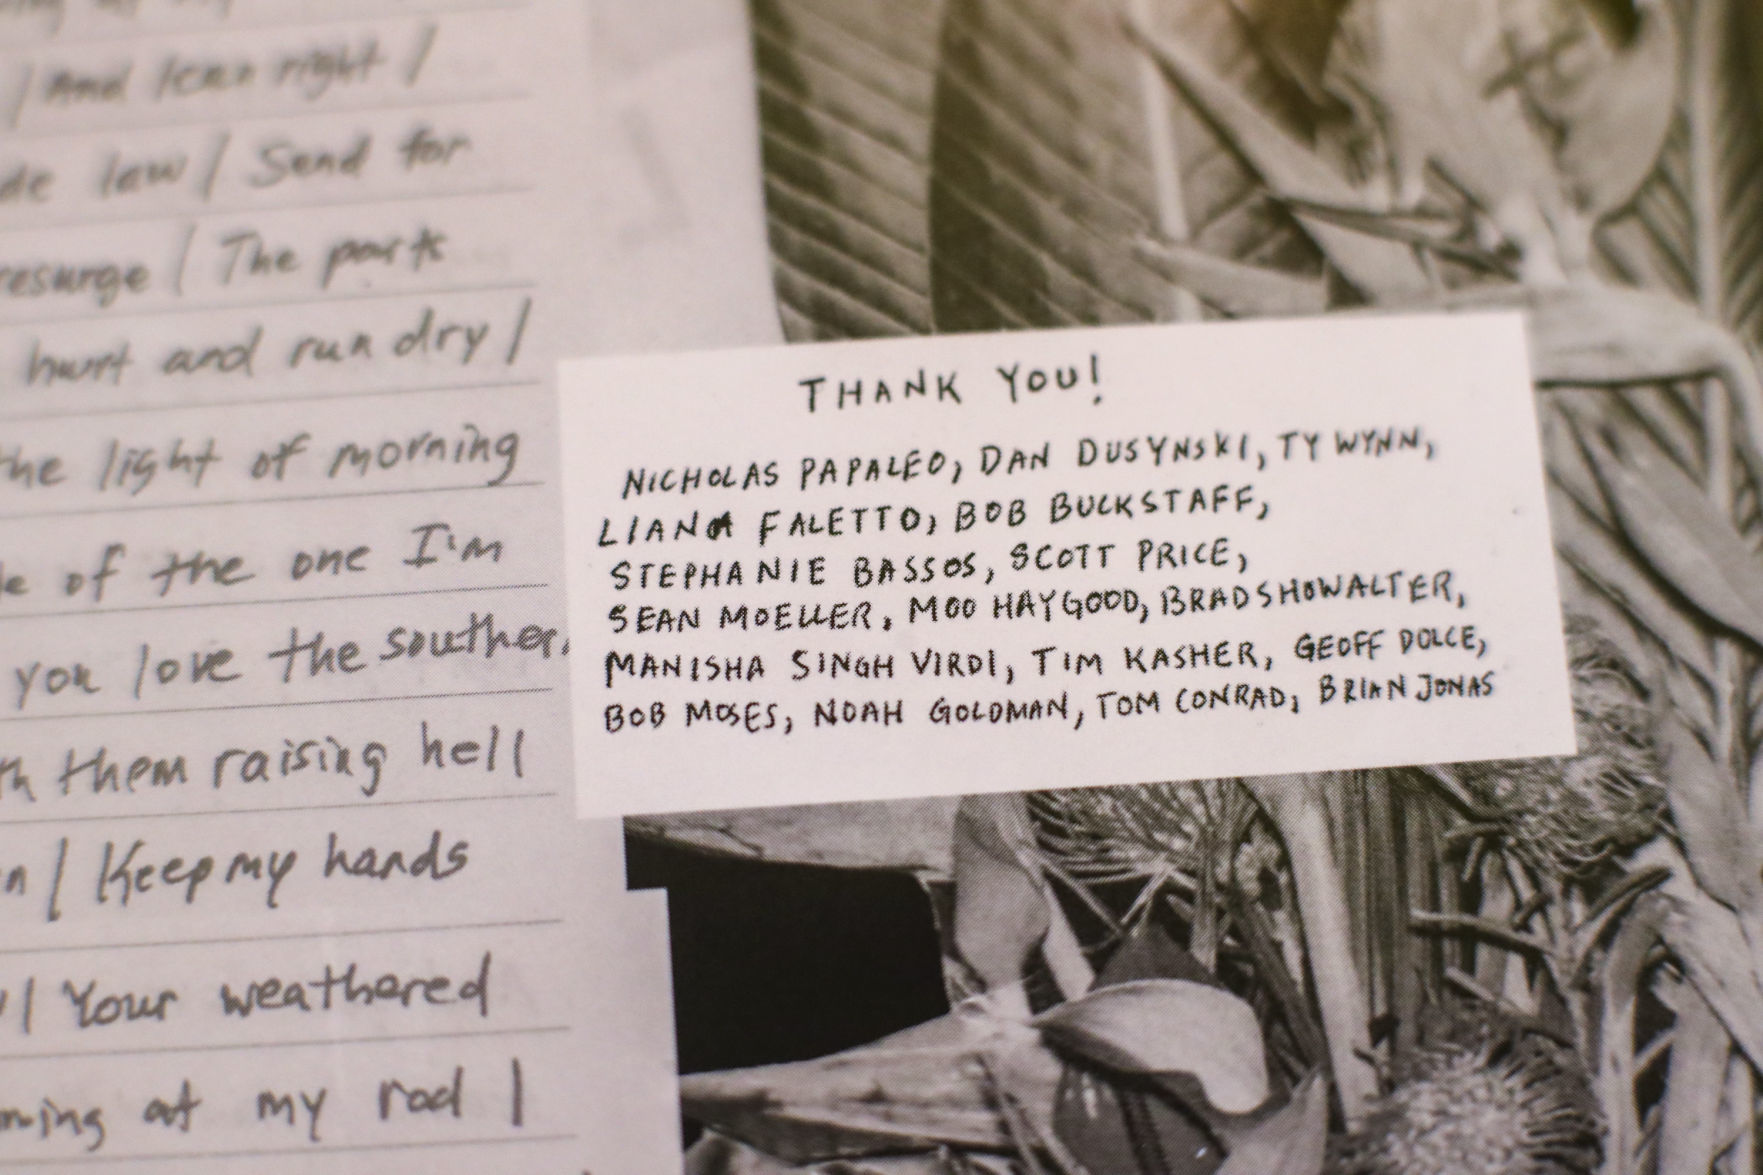 / And lean right /
de law / Send for
resurge / The parts
hurt and run dry /
the light of morning
of the one I'm
you love the souther
them raising hell
/ Keep my hands
/ Your weathered
at my rod /
THANK YOU!
NICHOLAS PAPALEO, DAN DUSYNSKI, TY WYNN,
LIANA FALETTO, BOB BUCKSTAFF,
STEPHANIE BASSOS, SCOTT PRICE,
SEAN MOELLER, MOO HAYGOOD, BRAD SHOWALTER,
MANISHA SINGH VIRDI, TIM KASHER, GEOFF DOLCE,
BOB MOSES, NOAH GOLDMAN, TOM CONRAD, BRIAN JONAS